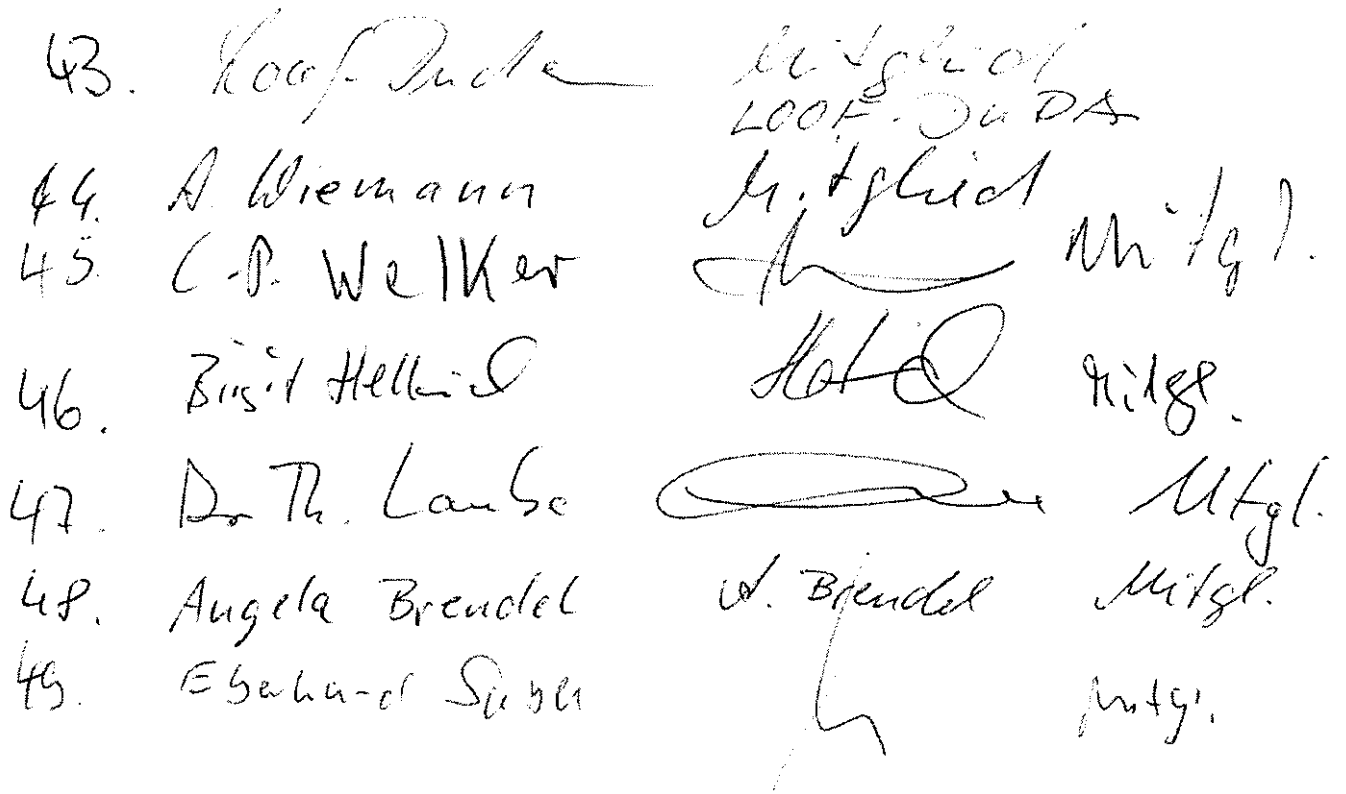 43. Loof-Duda Mitglied
LOOF-DUDA
44. A. Wiemann Mitglied
45. C.-P. Welker Mitgl.
46. Birgit Mitgl.
47. Dr. Th. Laube Mitgl.
48. Angela Brendel A. Brendel Mitgl.
49. Eberhard Mitgl.